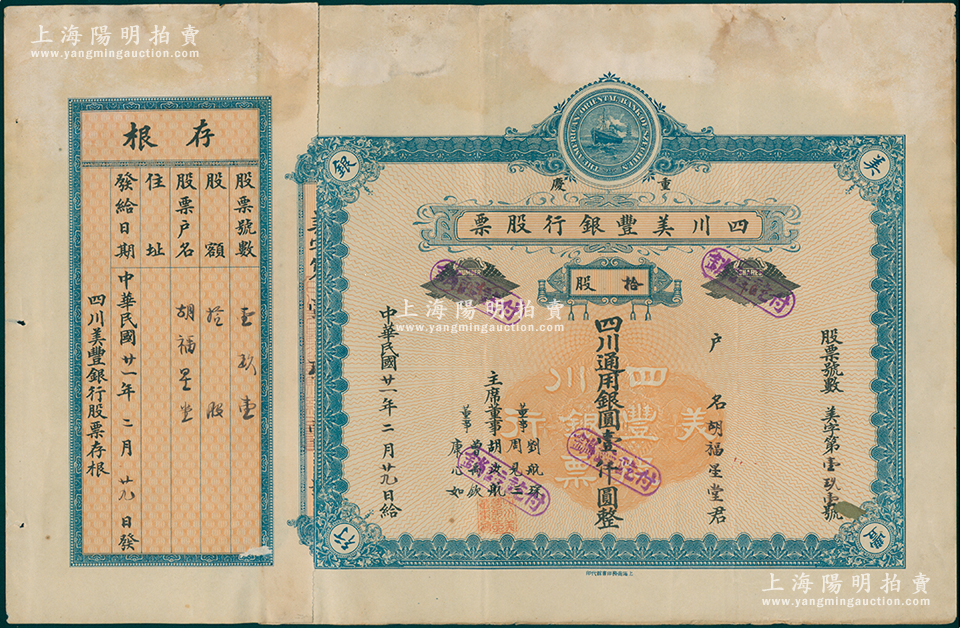 上海陽明拍賣
www.yangmingauction.com
上海陽明拍賣
www.yangmingauction.com
THE AMERICAN ORIENTAL BANK OF SZECHUEN
美
銀
豐
行
重慶
四川美豐銀行股票
拾股
股票號數 美字第壹玖壹號
戶名 胡福星堂君
四川通用銀圓壹仟圓整
四川
美豐銀行
票
董事 劉航琛
周見三
主席董事 胡汝航
董事
康心如
付訖註銷
付訖註銷
付訖註銷
付訖註銷
中華民國廿一年二月廿九日給
存根
股票號數 壹玖壹
股額 拾股
股票戶名 胡福星堂
住址
發給日期 中華民國廿一年二月廿九日發
四川美豐銀行股票存根
上海陽明拍賣
www.yangmingauction.com
上海陽明拍賣
www.yangmingauction.com